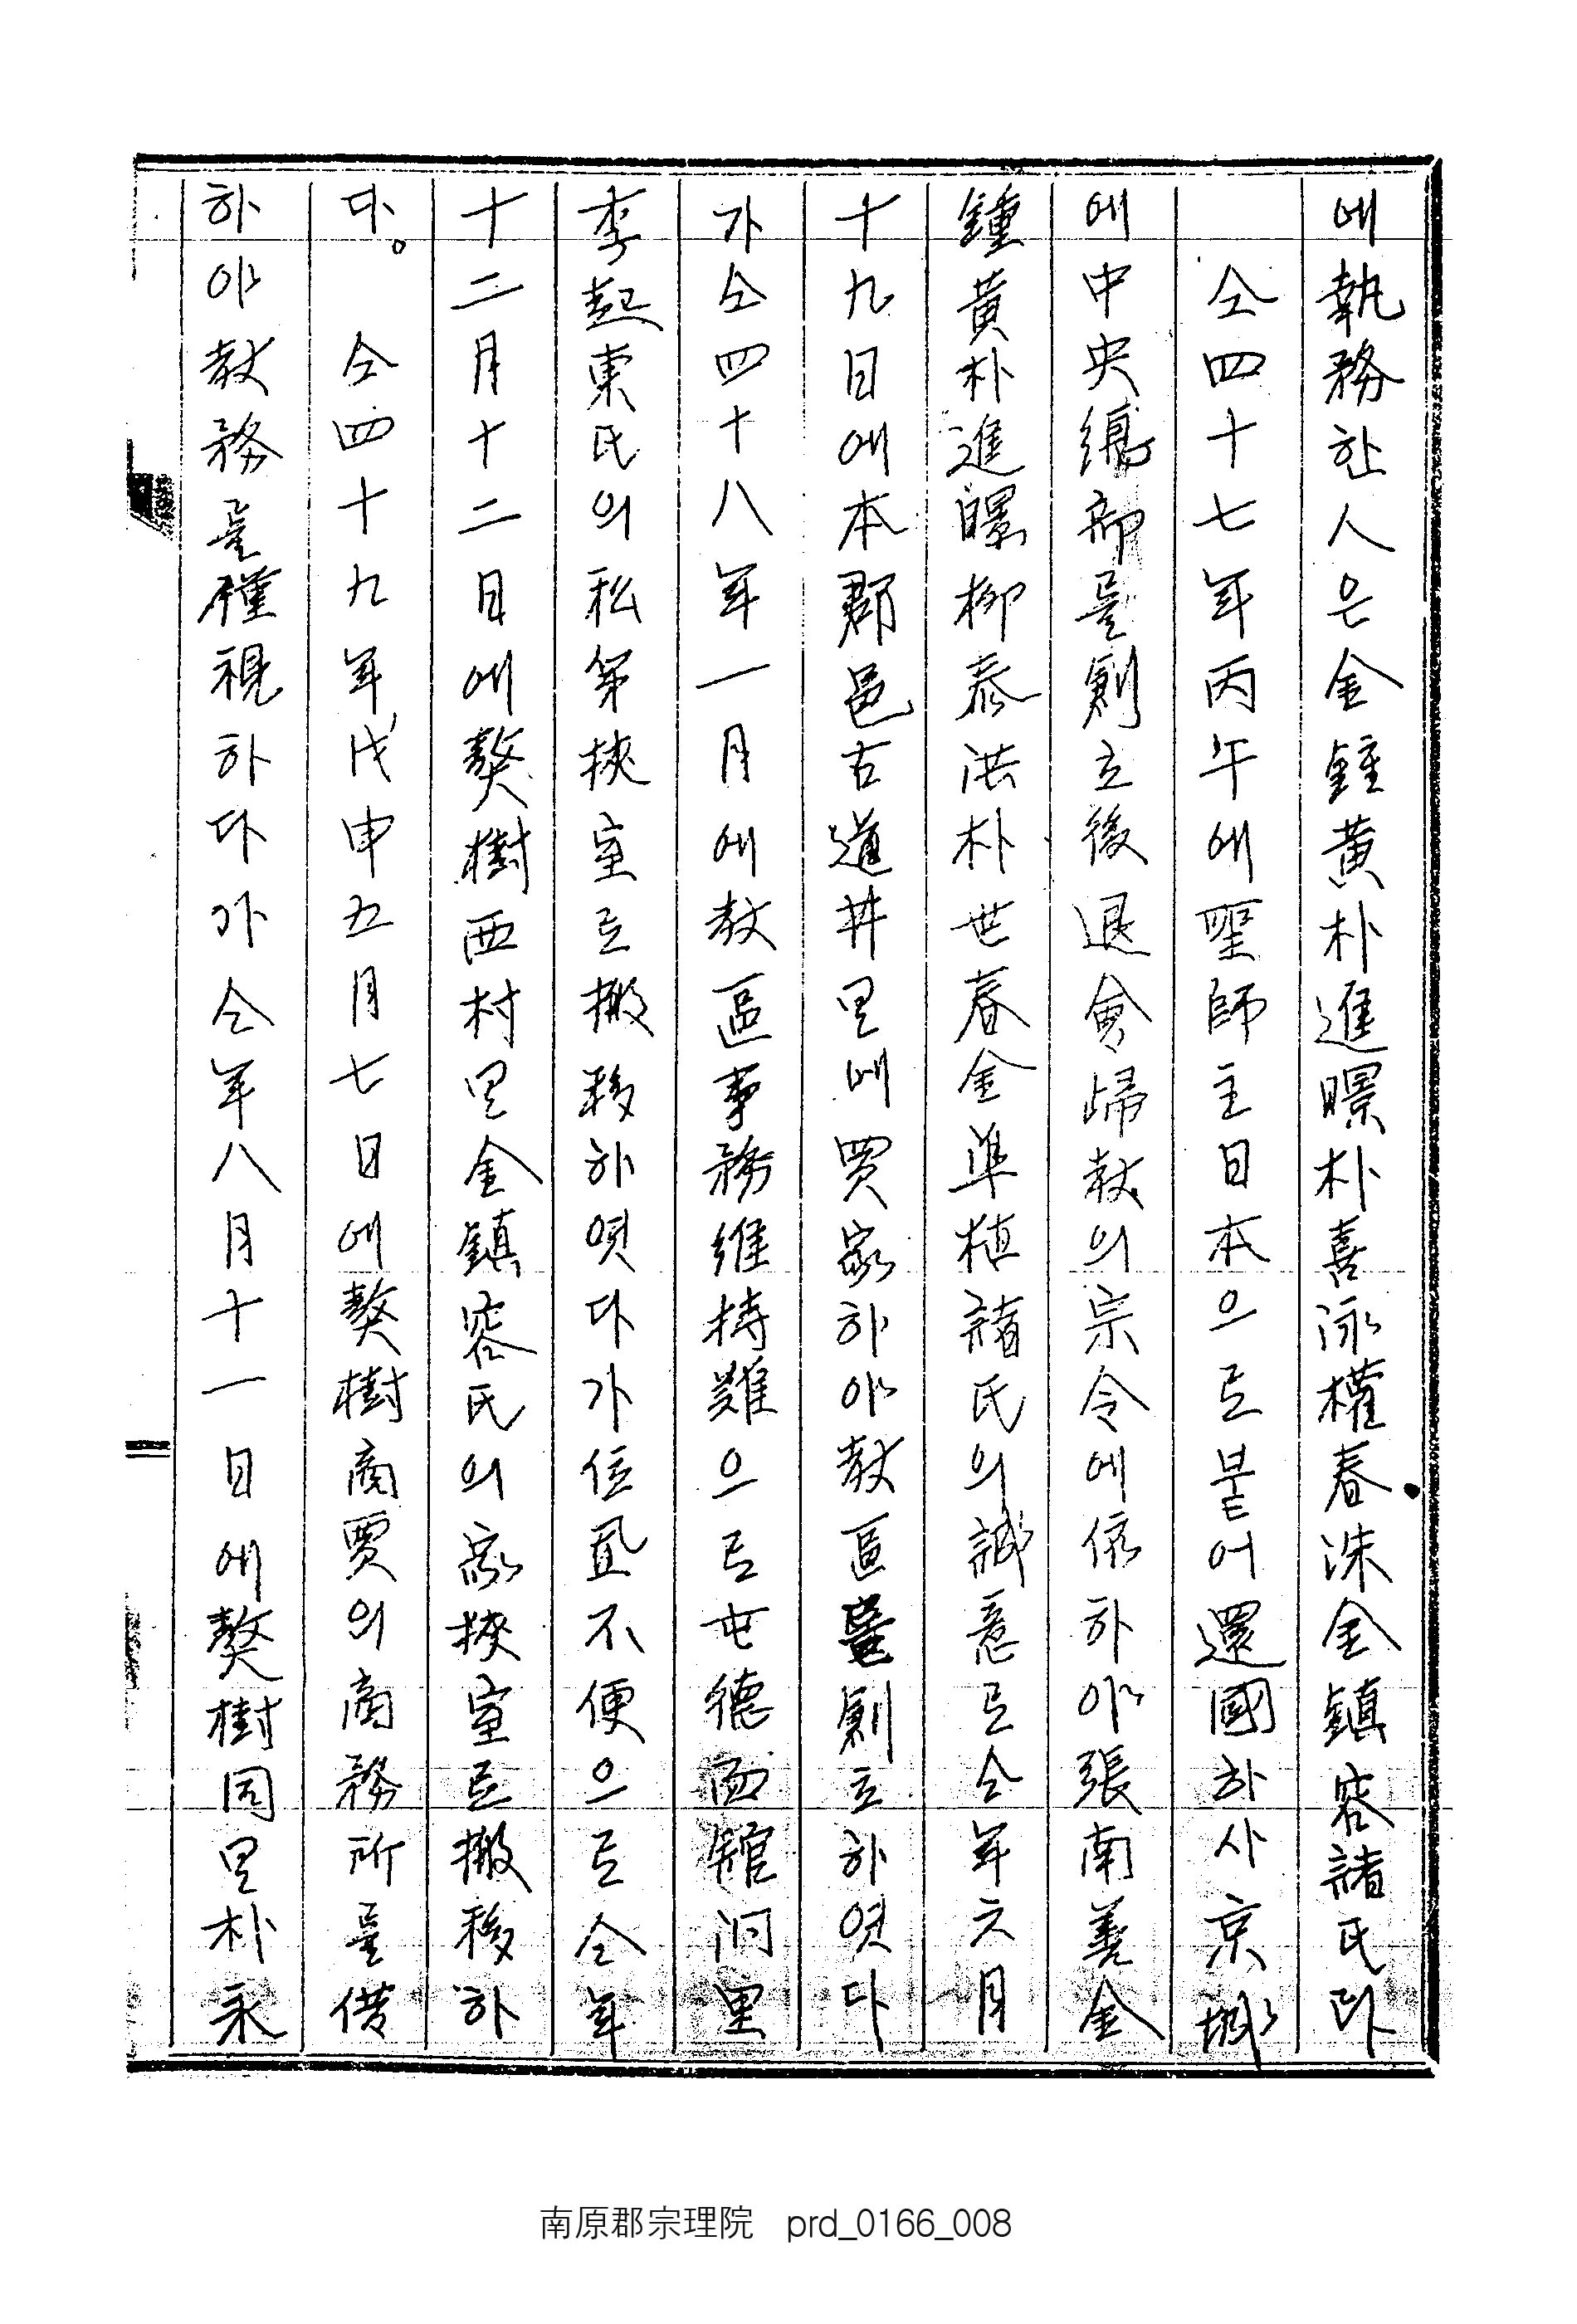 에執務한人은金鍾黃朴進暻朴喜泳權春洙金鎭容諸氏다
仝四十七年丙午에聖師主日本으로붙어還國하사京城
에中央總部를創立後退會歸敎의宗令에依하야張南善金
鍾黃朴進暻柳泰洪朴世春金準植諸氏의誠意로仝年六月
十九日에本郡邑古道井里에買家하야敎區室創立하엿다
가仝四十八年一月에敎區事務維持難으로屯德面舘洞里
李起東氏의私第挾室로搬移하엿다가位置不便으로仝年
十二月十二日에獒樹西村里金鎭容氏의家挾室로搬移하
다。 仝四十九年戊申五月七日에獒樹商賈의商務所를借
하야敎務를權視하다가仝年八月十一日에獒樹同里朴永
南原郡宗理院 prd_0166_008